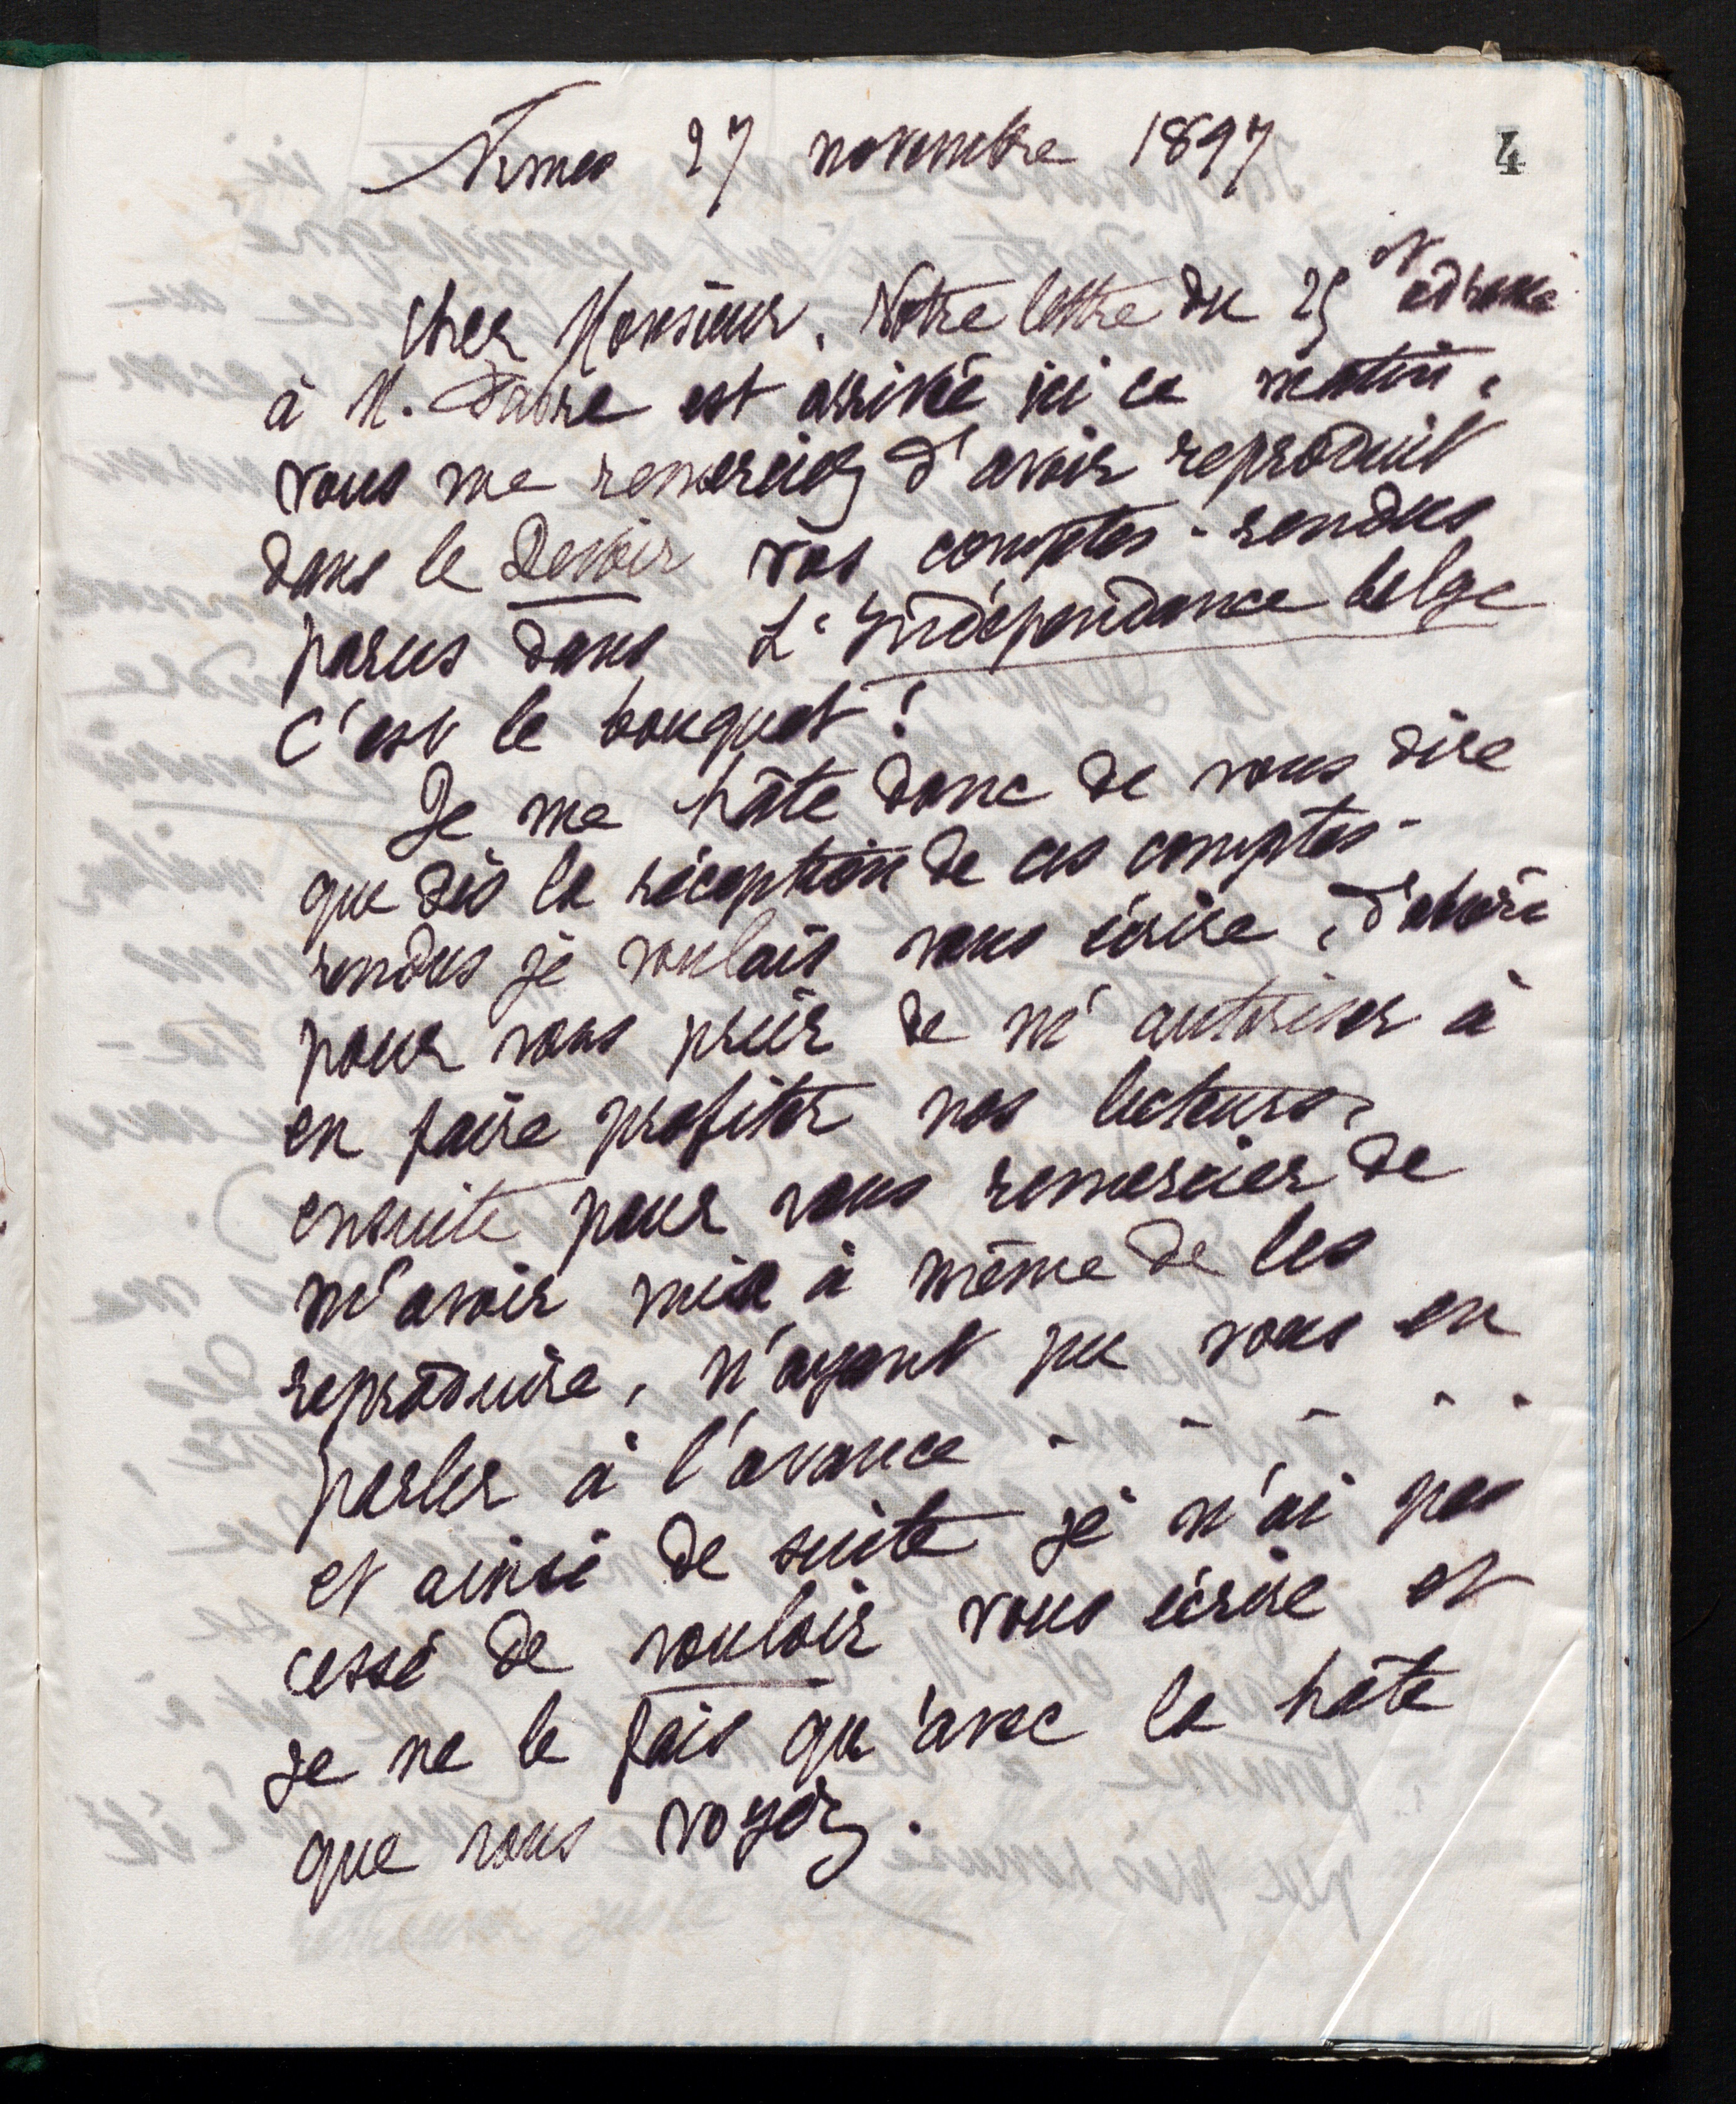 Nimes 27 novembre 1897
4
Cher Monsieur. Votre lettre du 25 ct adressée
à M. Fabre est arrivée ici ce matin.
vous me remerciez d'avoir reproduit
dans le Devoir vos comptes-rendus
parus dans L'Indépendance belge
C'est le bouquet !
Je me hâte donc de vous dire
que dès la réception de ces comptes-
rendus je voulais vous écrire, d'abord
pour vous prier de m'autoriser à
en faire profiter nos lecteurs,
ensuite pour vous remercier de
m'avoir mise à même de les
reproduire, n'ayant pu vous en
parler à l'avance - - - - -
et ainsi de suite je n'ai pas
cessé de vouloir vous écrire et
je ne le fais qu'avec la hâte
que vous voyez.